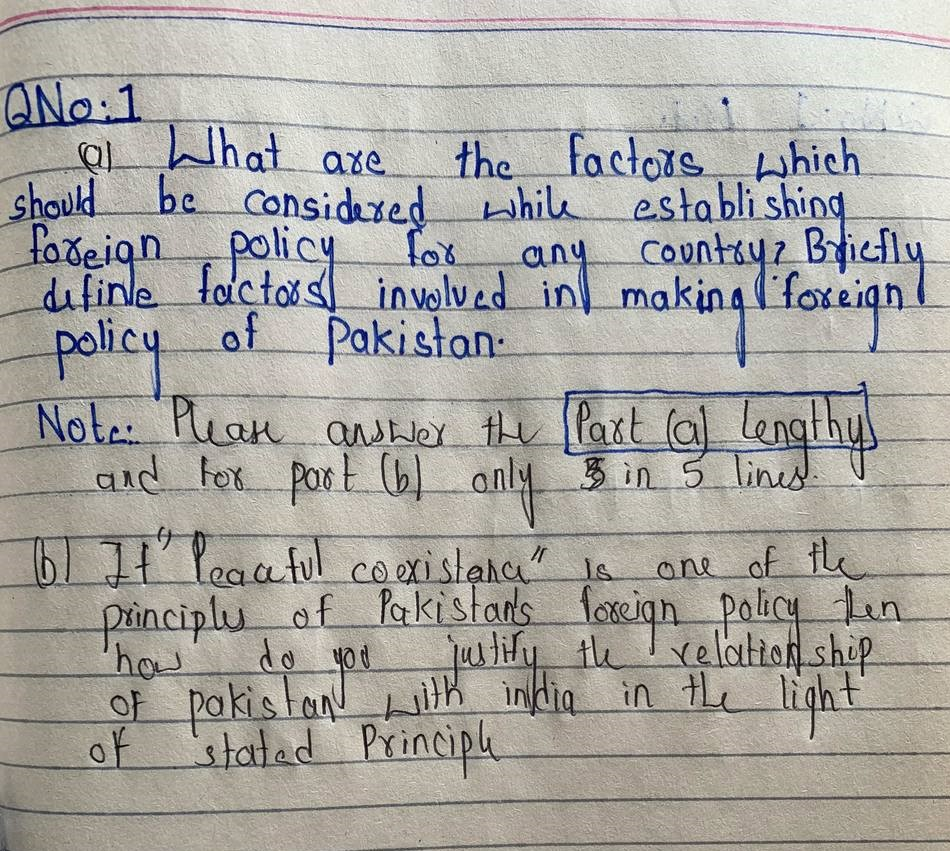 QNo:1
(a) What are the factors which
should be considered while establishing
foreign policy for any country? Briefly
define factors involved in making foreign
policy of Pakistan.
Note: Please answer the Part (a) lengthy
and for part (b) only in 5 lines.
(b) If "Peaceful coexistence" is one of the
principles of Pakistan's foreign policy then
how do you justify the relationship
of pakistan with india in the light
of stated Principle